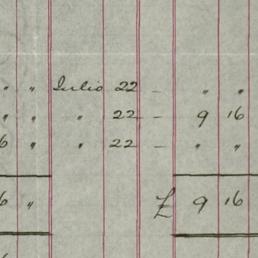 " " Julio 22 - " "
" " " 22 - 9 16
6 " " 22 - " "
6 " £ 9 16